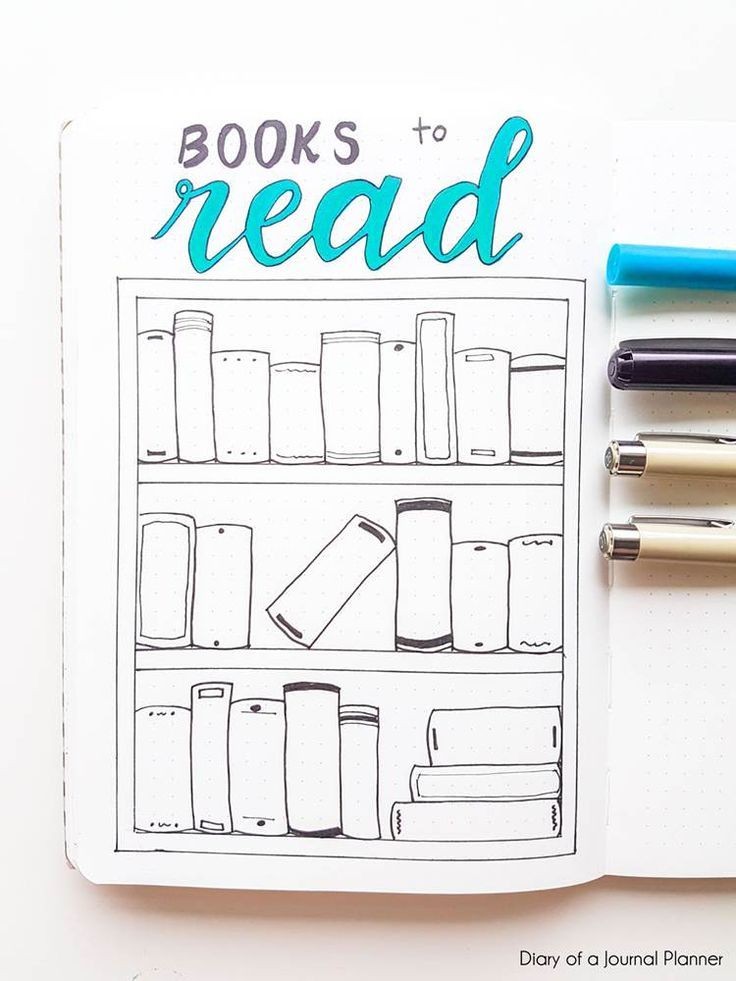 BOOKS to
read
Diary of a Journal Planner